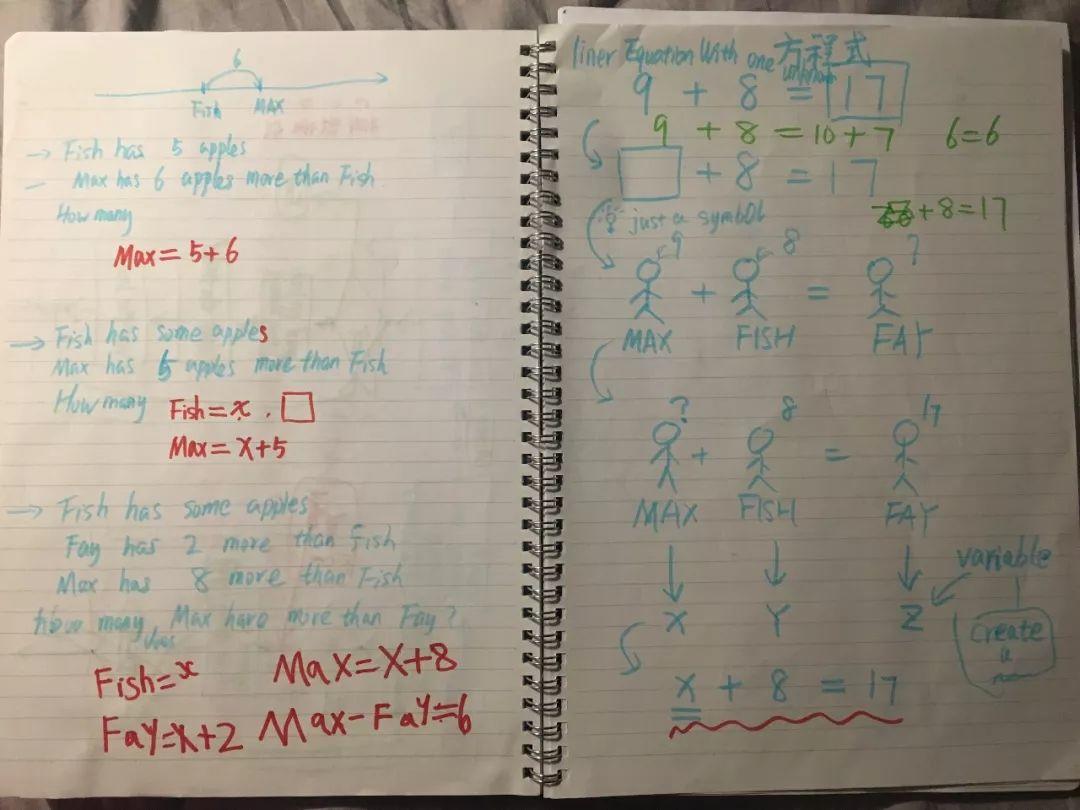 6
Fish MAX
→ Fish has 5 apples
– Max has 6 apples more than Fish
How many
Max = 5+6
→ Fish has some apples
Max has 5 apples more than Fish
How many Fish = x . □
Max = x+5
→ Fish has some apples
Fay has 2 more than Fish
Max has 8 more than Fish
how many Max have more than Fay?
does
Fish = x Max = X+8
Fay = x+2 Max – Fay = 6
liner Equation With one 方程式
unknown
9 + 8 = 17
9 + 8 = 10 + 7 6=6
□ + 8 = 17
just a symbol
+ 8 = 17
9 8 ?
+ =
MAX FISH FAY
? 8 17
+ =
MAX FISH FAY
variable
X Y Z
Create
x + 8 = 17